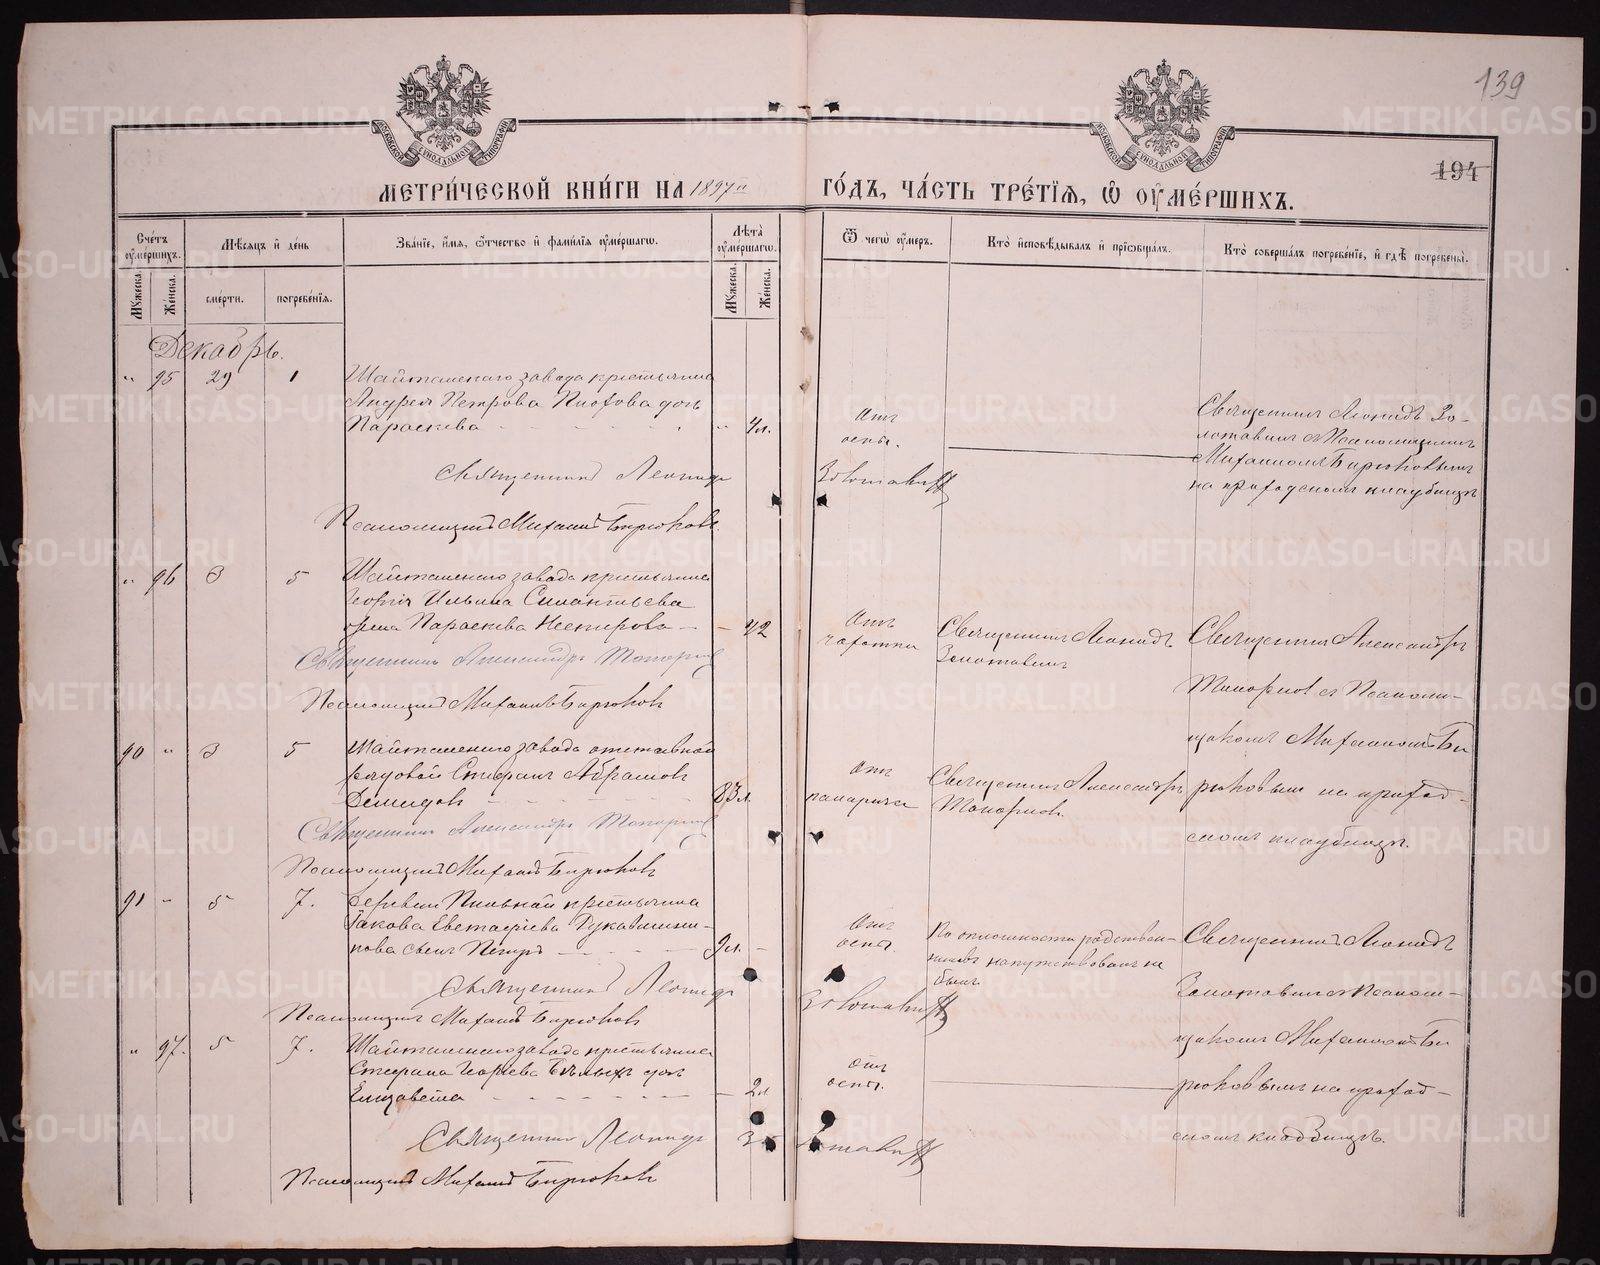 139
194
МЕТРИ́ЧЕСКОЙ КНИ́ГИ НА 1897й ГО́ДЪ, ЧА́СТЬ ТРЕ́ТІѦ, Ѡ҆ ОУ҆МЕ́РШИХЪ.
Сче́тъ оу҆ме́ршихъ.
Мꙋ́жеска.
Же́нска.
Мѣ́сѧцъ и҆ де́нь
сме́рти.
погребе́нїѧ.
Зва́нїе, и҆́мѧ, ѻ҆́тчество и҆ фами́лїѧ оу҆ме́ршагѡ.
Лѣ́та оу҆ме́ршагѡ.
Мꙋ́жеска.
Же́нска.
Ѿ чегѡ̀ оу҆́меръ.
Кто̀ и҆сповѣ́дывалъ и҆ прїѡбща́лъ.
Кто̀ соверша́лъ погребе́нїе, и҆ гдѣ̀ погребены̀.
Декабрь.
" 95 29 1 Шайтанскаго завода крестьянина
Андрея Петрова дочь
Параскева " 4 л.
Отъ
оспы.
Священникъ Леонидъ Зо-
лотавинъ съ Псаломщикомъ
Михаиломъ Бирюковымъ
на приходскомъ кладбищѣ
Священникъ Леонидъ Золотавинъ
Псаломщикъ Михаилъ Бирюковъ.
" 96 3 5 Шайтанскаго завода крестьянина
Георгія Ильина Силантьева
жена Параскева 42
Отъ
чахотки
Священникъ Леонидъ
Золотавинъ
Священникъ Александръ
Топорковъ съ Псалом-
щикомъ Михаиломъ Би
рюковымъ на приход-
скомъ кладбищѣ.
Священникъ Александръ Топорковъ
Псаломщикъ Михаилъ Бирюковъ
90 " 3 5 Шайтанскаго завода отставной
рядовой Стефанъ Абрамовъ
Демидовъ
Отъ
паралича
Священникъ Александръ
Топорковъ.
Священникъ Александръ Топорковъ
Псаломщикъ Михаилъ Бирюковъ
91 " 5 7. Деревни Пильной крестьянина
Іакова Евстафіева Рукавишни-
кова сынъ Петръ 9 л.
Отъ
оспы.
По оплошности родствен-
никовъ напутствованъ не
былъ.
Священникъ Леонидъ
Золотавинъ съ Псалом-
щикомъ Михаиломъ Би
рюковымъ на приход-
скомъ кладбищѣ.
Священникъ Леонидъ Золотавинъ
Псаломщикъ Михаилъ Бирюковъ
" 97. 5 7. Шайтанскаго завода крестьянина
Стефана Георгіева Бѣлыхъ дочь
Елизавета 2 л
Отъ
оспы.
Священникъ Леонидъ Золотавинъ
Псаломщикъ Михаилъ Бирюковъ